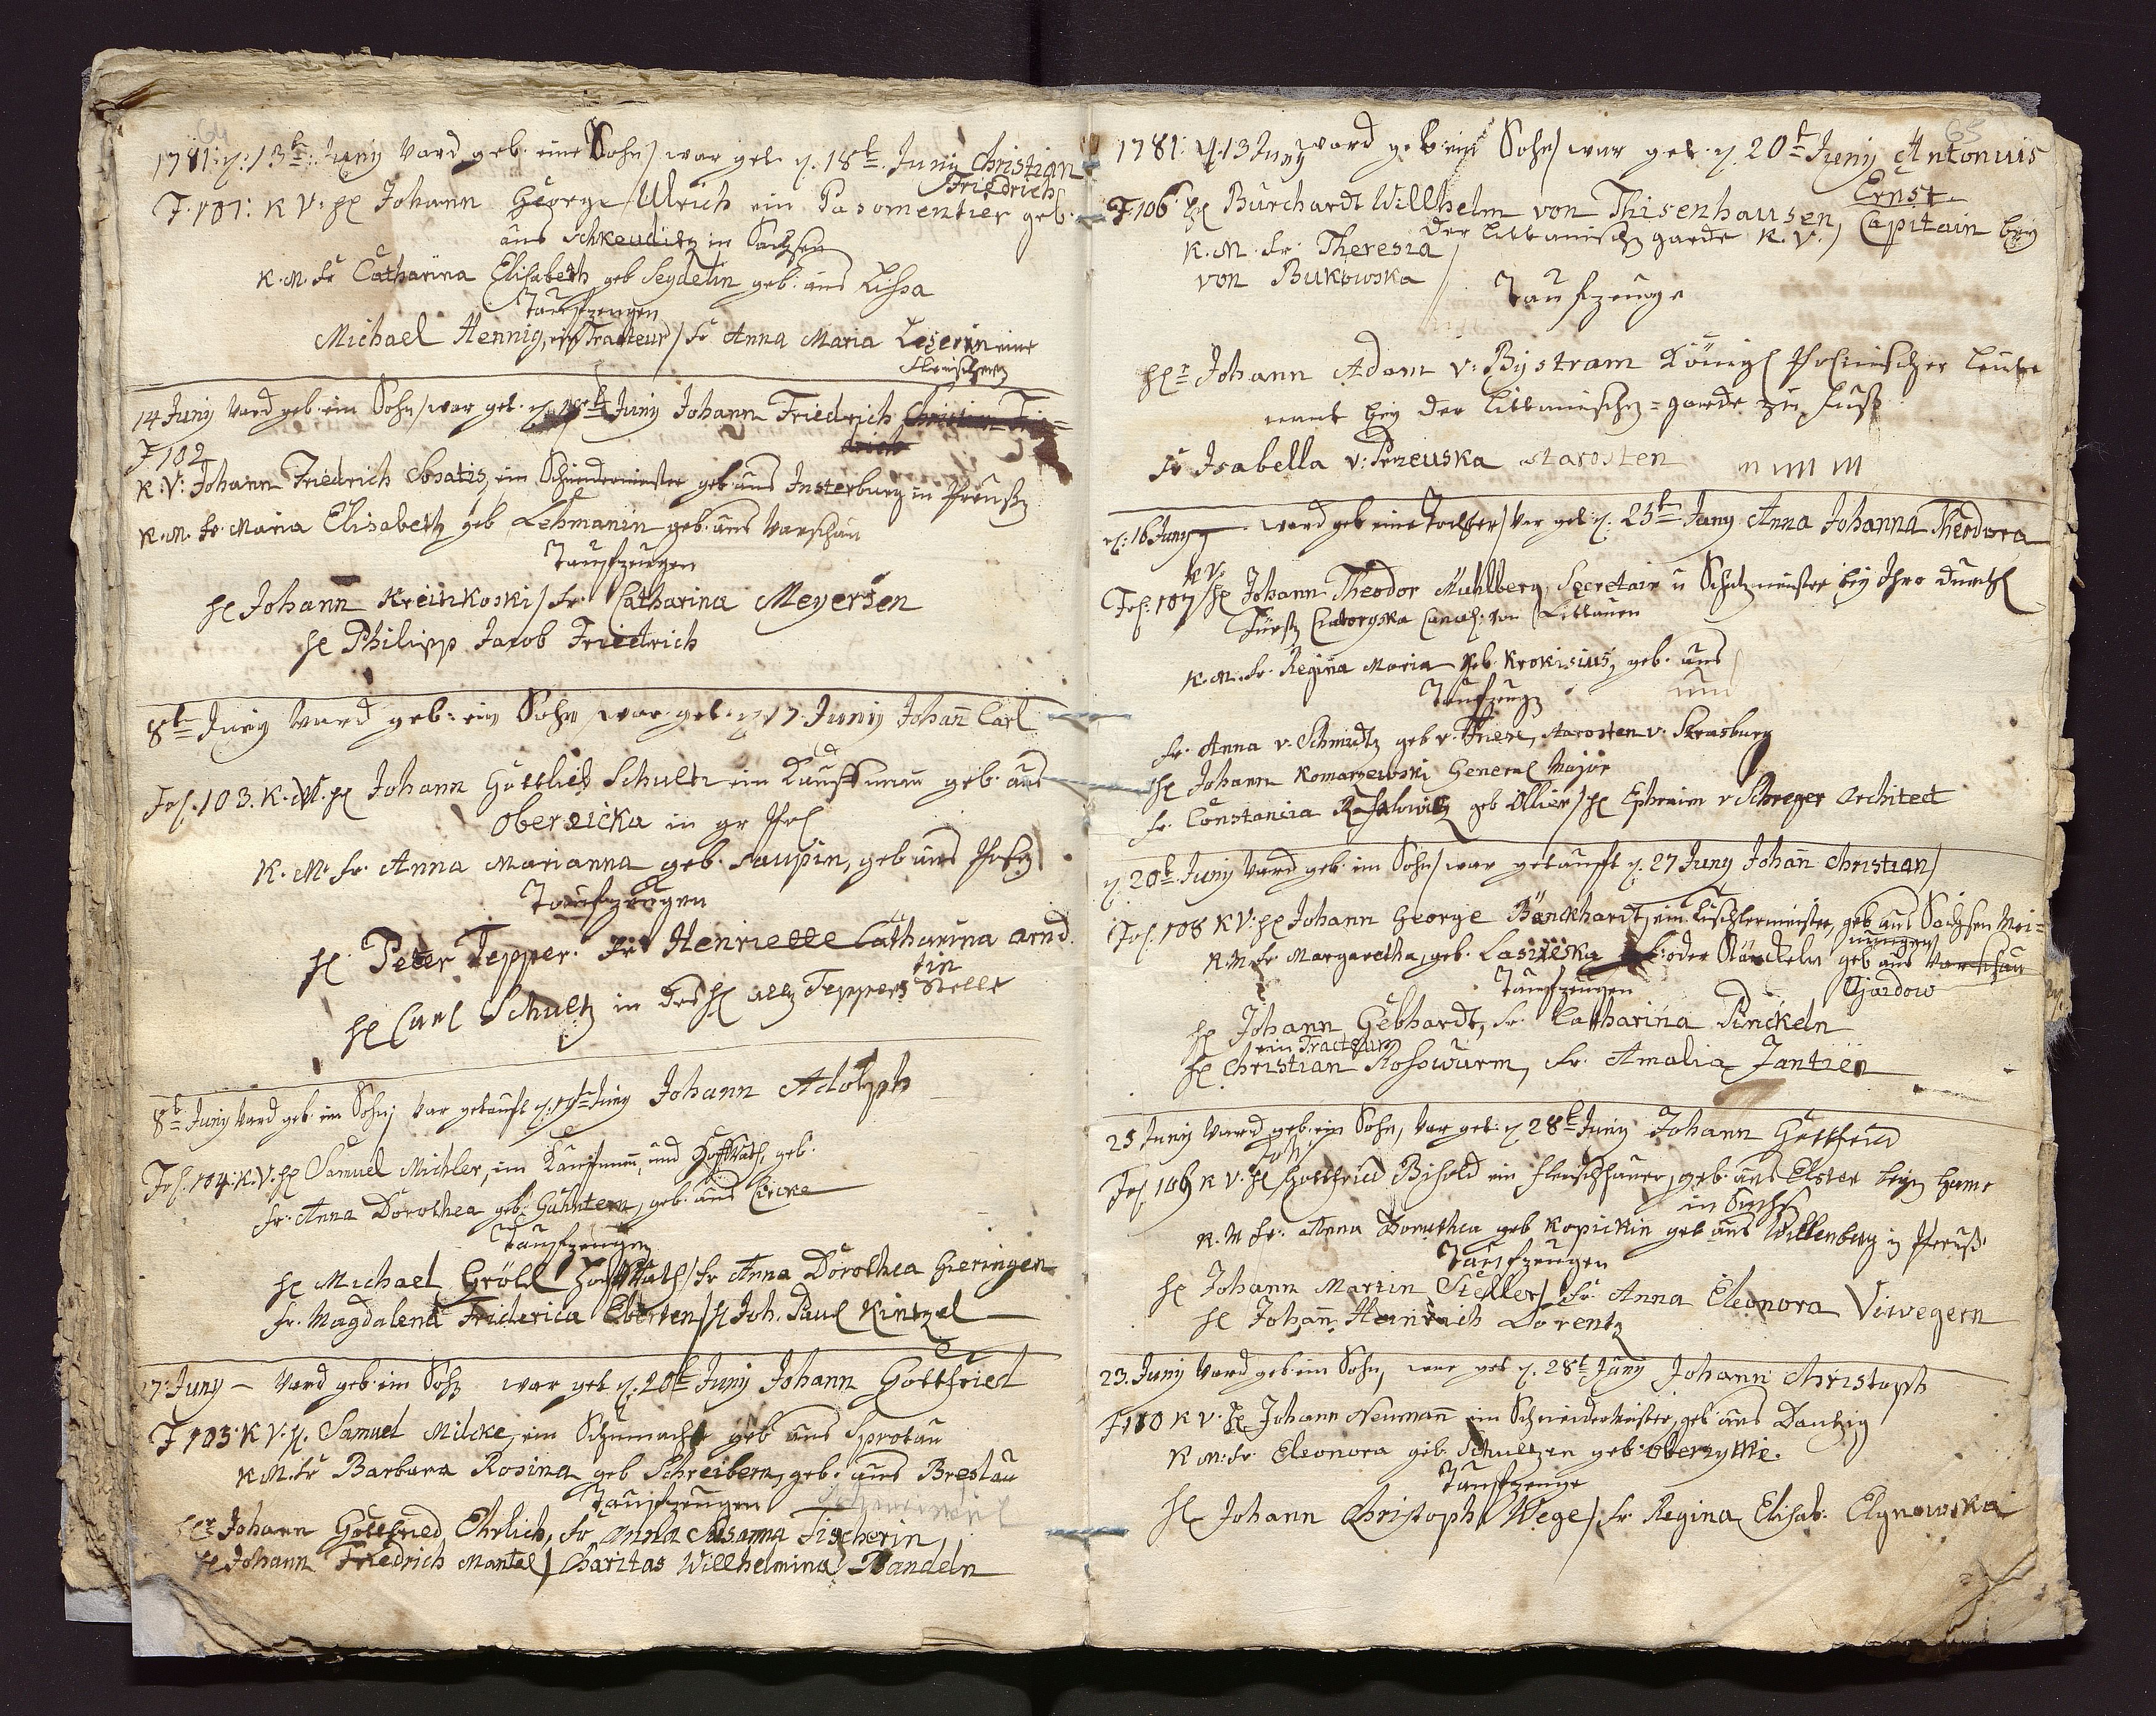 64
1781: d. 13t. Juny Ward geb. eine Sohn / war get. d. 18t. Juny Christian
Friedrich
F. 101: K V. H Johann George Ulrich ein Pasomentier geb.
aus Schkeuditz in Sachsen
K. M. Fr Catharina Elisabeth geb Seydelin geb. aus Lissa
Taufzeugen
Michael Hennig, ein Tracteur / Fr Anna Maria Leserin eine
14 Juny Ward geb. ein Sohn / war get. d. Juny Johann Friedrich
F 102
K. V: Johann Friedrich Sosatis, ein Schneidermeister geb aus Insterburg in Preußen
K. M. Fr. Maria Elisabeth geb Lehmanin geb. aus Warschau
Taufzeugen
H Johann Kreinkoski / Fr. Catharina Meyersen
H Philipp Jacob Friedrich
8t Juny Ward geb: ein Sohn war get. d 17 Juny Johañ Carl
Fol. 103. K. H Johann Gottlieb Schultz ein Kauffman geb. aus
Obersicka in gr
K. M. Fr. Anna Marianna geb. Saupin, geb aus
Taufzeugen
H Peter Tepper. Fr Henriette Catharina Arnd
tin
H Carl Schultz in des H Teppers Stelle
8t. Juny Ward geb. ein Sohn, War getauft d. 19t Juny Johann Adolph
Fol. 104: K. V. H Samuel Michler, ein Kaufman, und Hoffrath, geb.
Fr. Anna Dorothea geb. Günthern, geb. aus Circke
Taufzeugen
H Michael Gröll Hofrath / Fr Anna Dorothea Gieringen
Fr. Magdalena Friderica Eberten / H Joh. Paul Kintzel
17. Juny – Ward geb. ein Sohn war get d. 20t Juny Johann Gottfried
F 105. K V. H. Samuel Milcke, ein Schumacher geb aus Sprotau
K M. Fr Barbara Rosina geb Schreibern, geb. aus Breslau
Taufzeugen
Hr Johann Gottfried Ehrlich, Fr Anna Susanna Fischerin,
H Johann Friedrich Mantel / Charitas Willhelmina Bandeln
65
1781: d. 13 Juny ward geb. ein Sohn / war get. d. 20t Juny Antonius
Ernst
F 106 H Burchardt Willhelm von Thisenhausen, Capitain bey
der Littauischen garde K. V. /
K. M. Fr. Theresia
von Bukowska
Taufzeuge
Hr Johann Adam v. Bystram Königl Polnischer Leute
nant bey der Littauischen = garde zu Fuß
Fr Isabella v: Przeuska Starosten
d. 16 Juny ward geb eine Tochter / War get. d. 23t Juny Anna Johanna Theodora
K V.
Fol. 107 H Johann Theodor Mühlberg, Secretair u Schatzmeister bey Ihro durchl
Fürst Czatoryska Cancel. von Littauen
K. M. Fr. Regina Maria geb. Krokisius, geb. aus
Taufzeugen
Fr. Anna v. Schmidtz geb v. Friese, Starosten v. Strasburg
H Johann Komarzewski General Major
Fr. Constancia Rafalowitz geb Ollier / H Ephraim v Schreger Architect
d. 20t. Juny Ward geb. ein Sohn / war getaufft d. 27 Juny Johañ Christian /
Fol. 108 K V. H Johann George Bänckhardt, ein Tischlermeister, geb aus Sachsen Mei=
nungen
K. M. Fr. Margaretha, geb. Lasinska oder geb aus Warschau
Taufzeugen
H Johann Gebhardt, Fr. Catharina Pinckeln
ein Tracteur
H Christian Rosswurm, Fr. Amalia Jantzen
25 Juny Ward geb. ein Sohn, War get: d 28t Juny Johann Gottfried
Joh.
Fol. 109 K V. H Gottfried Bisold ein Fleischhauer, geb. aus Elster
in Sachs
K. M Fr. Anna Dorothea geb Kopickin geb aus Willenberg in Preuß.
Taufzeugen
H Johann Martin Steller / Fr. Anna Eleonora Viwegern
H Johañ Heinrich Lorentz
23. Juny Ward geb. ein Sohn, war get d. 28t Juny Johann Christoph
F 110 K V. H Johann Neumañ ein Schneidermeister, geb. aus Dantzig
K M. Fr. Eleonora geb. Schultzen geb. Oberzytke.
Taufzeuge
H Johann Christoph Wege / Fr. Regina Elisab. Elgnowska